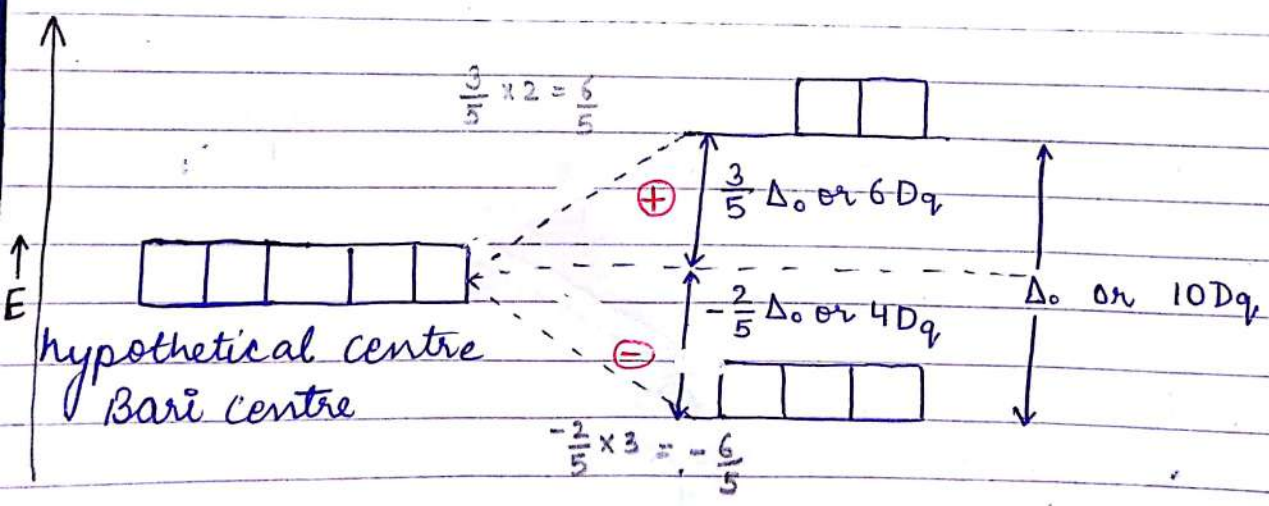 3/5 × 2 = 6/5
⊕
3/5 Δ₀ or 6 Dq
↑
E
Δ₀ or 10 Dq
-2/5 Δ₀ or 4 Dq
hypothetical centre
⊖
Bari centre
-2/5 × 3 = -6/5